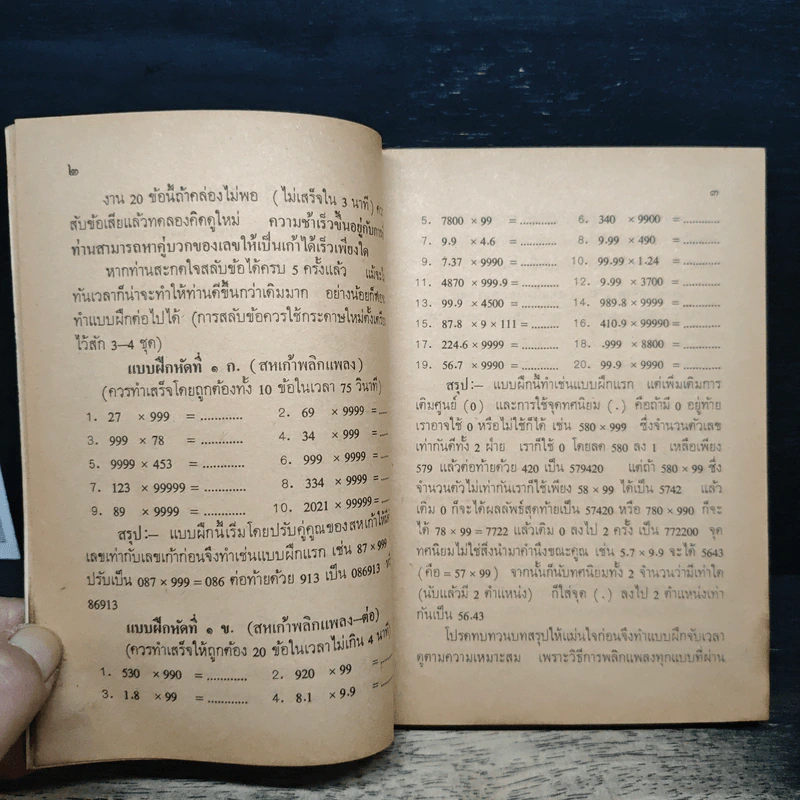 ๒
งาน 20 ข้อนี้ถ้าคล่องไม่พอ (ไม่เสร็จใน 3 นาที)
สับข้อเสียแล้วทดลองคิดดูใหม่ ความช้าเร็วขึ้นอยู่กับการที่
ท่านสามารถหาคู่บวกของเลขให้เป็นเก้าได้เร็วเพียงใด
หากท่านสะกดใจสลับข้อได้ครบ 5 ครั้งแล้ว แม้จะไม่
ทันเวลาก็น่าจะทำให้ท่านดีขึ้นกว่าเดิมมาก อย่างน้อยก็
ทำแบบฝึกต่อไปได้ (การสลับข้อควรใช้กระดาษใหม่
ไว้สัก 3–4 ชุด)
แบบฝึกหัดที่ ๑ ก. (สหเก้าพลิกแพลง)
(ควรทำเสร็จโดยถูกต้องทั้ง 10 ข้อในเวลา 75 วินาที)
1. 27 × 999 = ............ 2. 69 × 9999 = ....
3. 999 × 78 = ............ 4. 34 × 999 = ....
5. 9999 × 453 = ............ 6. 999 × 9999 = ....
7. 123 × 99999 = ............ 8. 334 × 9999 = ....
9. 89 × 9999 = ............ 10. 2021 × 99999 = ....
สรุป:– แบบฝึกนี้เริ่มโดยปรับคู่คูณของสหเก้าให้มี
เลขเท่ากับเลขเก้าก่อนจึงทำเช่นแบบฝึกแรก เช่น 87 × 999
ปรับเป็น 087 × 999 = 086 ต่อท้ายด้วย 913 เป็น 086913
86913
แบบฝึกหัดที่ ๑ ข. (สหเก้าพลิกแพลง–ต่อ)
(ควรทำเสร็จให้ถูกต้อง 20 ข้อในเวลาไม่เกิน 4 นาที)
1. 530 × 990 = ............ 2. 920 × 99 = ............
3. 1.8 × 99 = ............ 4. 8.1 × 9.9 = ............
๓
5. 7800 × 99 = ............ 6. 340 × 9900 = ............
7. 9.9 × 4.6 = ............ 8. 9.99 × 490 = ............
9. 7.37 × 9990 = ............ 10. 99.99 × 1.24 = ............
11. 4870 × 999.9 = ............ 12. 9.99 × 3700 = ............
13. 99.9 × 4500 = ............ 14. 989.8 × 9999 = ............
15. 87.8 × 9 × 111 = ............ 16. 410.9 × 99990 = ............
17. 224.6 × 9999 = ............ 18. .999 × 8800 = ............
19. 56.7 × 9990 = ............ 20. 99.9 × 9990 = ............
สรุป:– แบบฝึกนี้ทำเช่นแบบฝึกแรก แต่เพิ่มเติมการ
เติมศูนย์ (0) และการใช้จุดทศนิยม (.) คือถ้ามี 0 อยู่ท้าย
เราอาจใช้ 0 หรือไม่ใช้ก็ได้ เช่น 580 × 999 ซึ่งจำนวนตัวเลข
เท่ากันดีทั้ง 2 ฝ่าย เราก็ใช้ 0 โดยลด 580 ลง 1 เหลือเพียง
579 แล้วต่อท้ายด้วย 420 เป็น 579420 แต่ถ้า 580 × 99 ซึ่ง
จำนวนตัวไม่เท่ากันก็ใช้เพียง 58 × 99 ได้เป็น 5742 แล้ว
เติม 0 ก็จะได้ผลลัพธ์สุดท้ายเป็น 57420 หรือ 780 × 990 ก็จะ
ได้ 78 × 99 = 7722 แล้วเติม 0 ลงไป 2 ครั้ง เป็น 772200 จุด
ทศนิยมไม่ใช่สิ่งนำมาคำนึงขณะคูณ เช่น 5.7 × 9.9 จะได้ 5643
(คือ = 57 × 99) จากนั้นก็นับทศนิยมทั้ง 2 จำนวนว่ามีเท่าใด
(นับแล้วมี 2 ตำแหน่ง) ก็ใส่จุด (.) ลงไป 2 ตำแหน่งเท่า
กันเป็น 56.43
โปรดทบทวนบทสรุปให้แม่นใจก่อนจึงทำแบบฝึกจับเวลา
ดูตามความเหมาะสม เพราะวิธีการพลิกแพลงทุกแบบที่ผ่าน